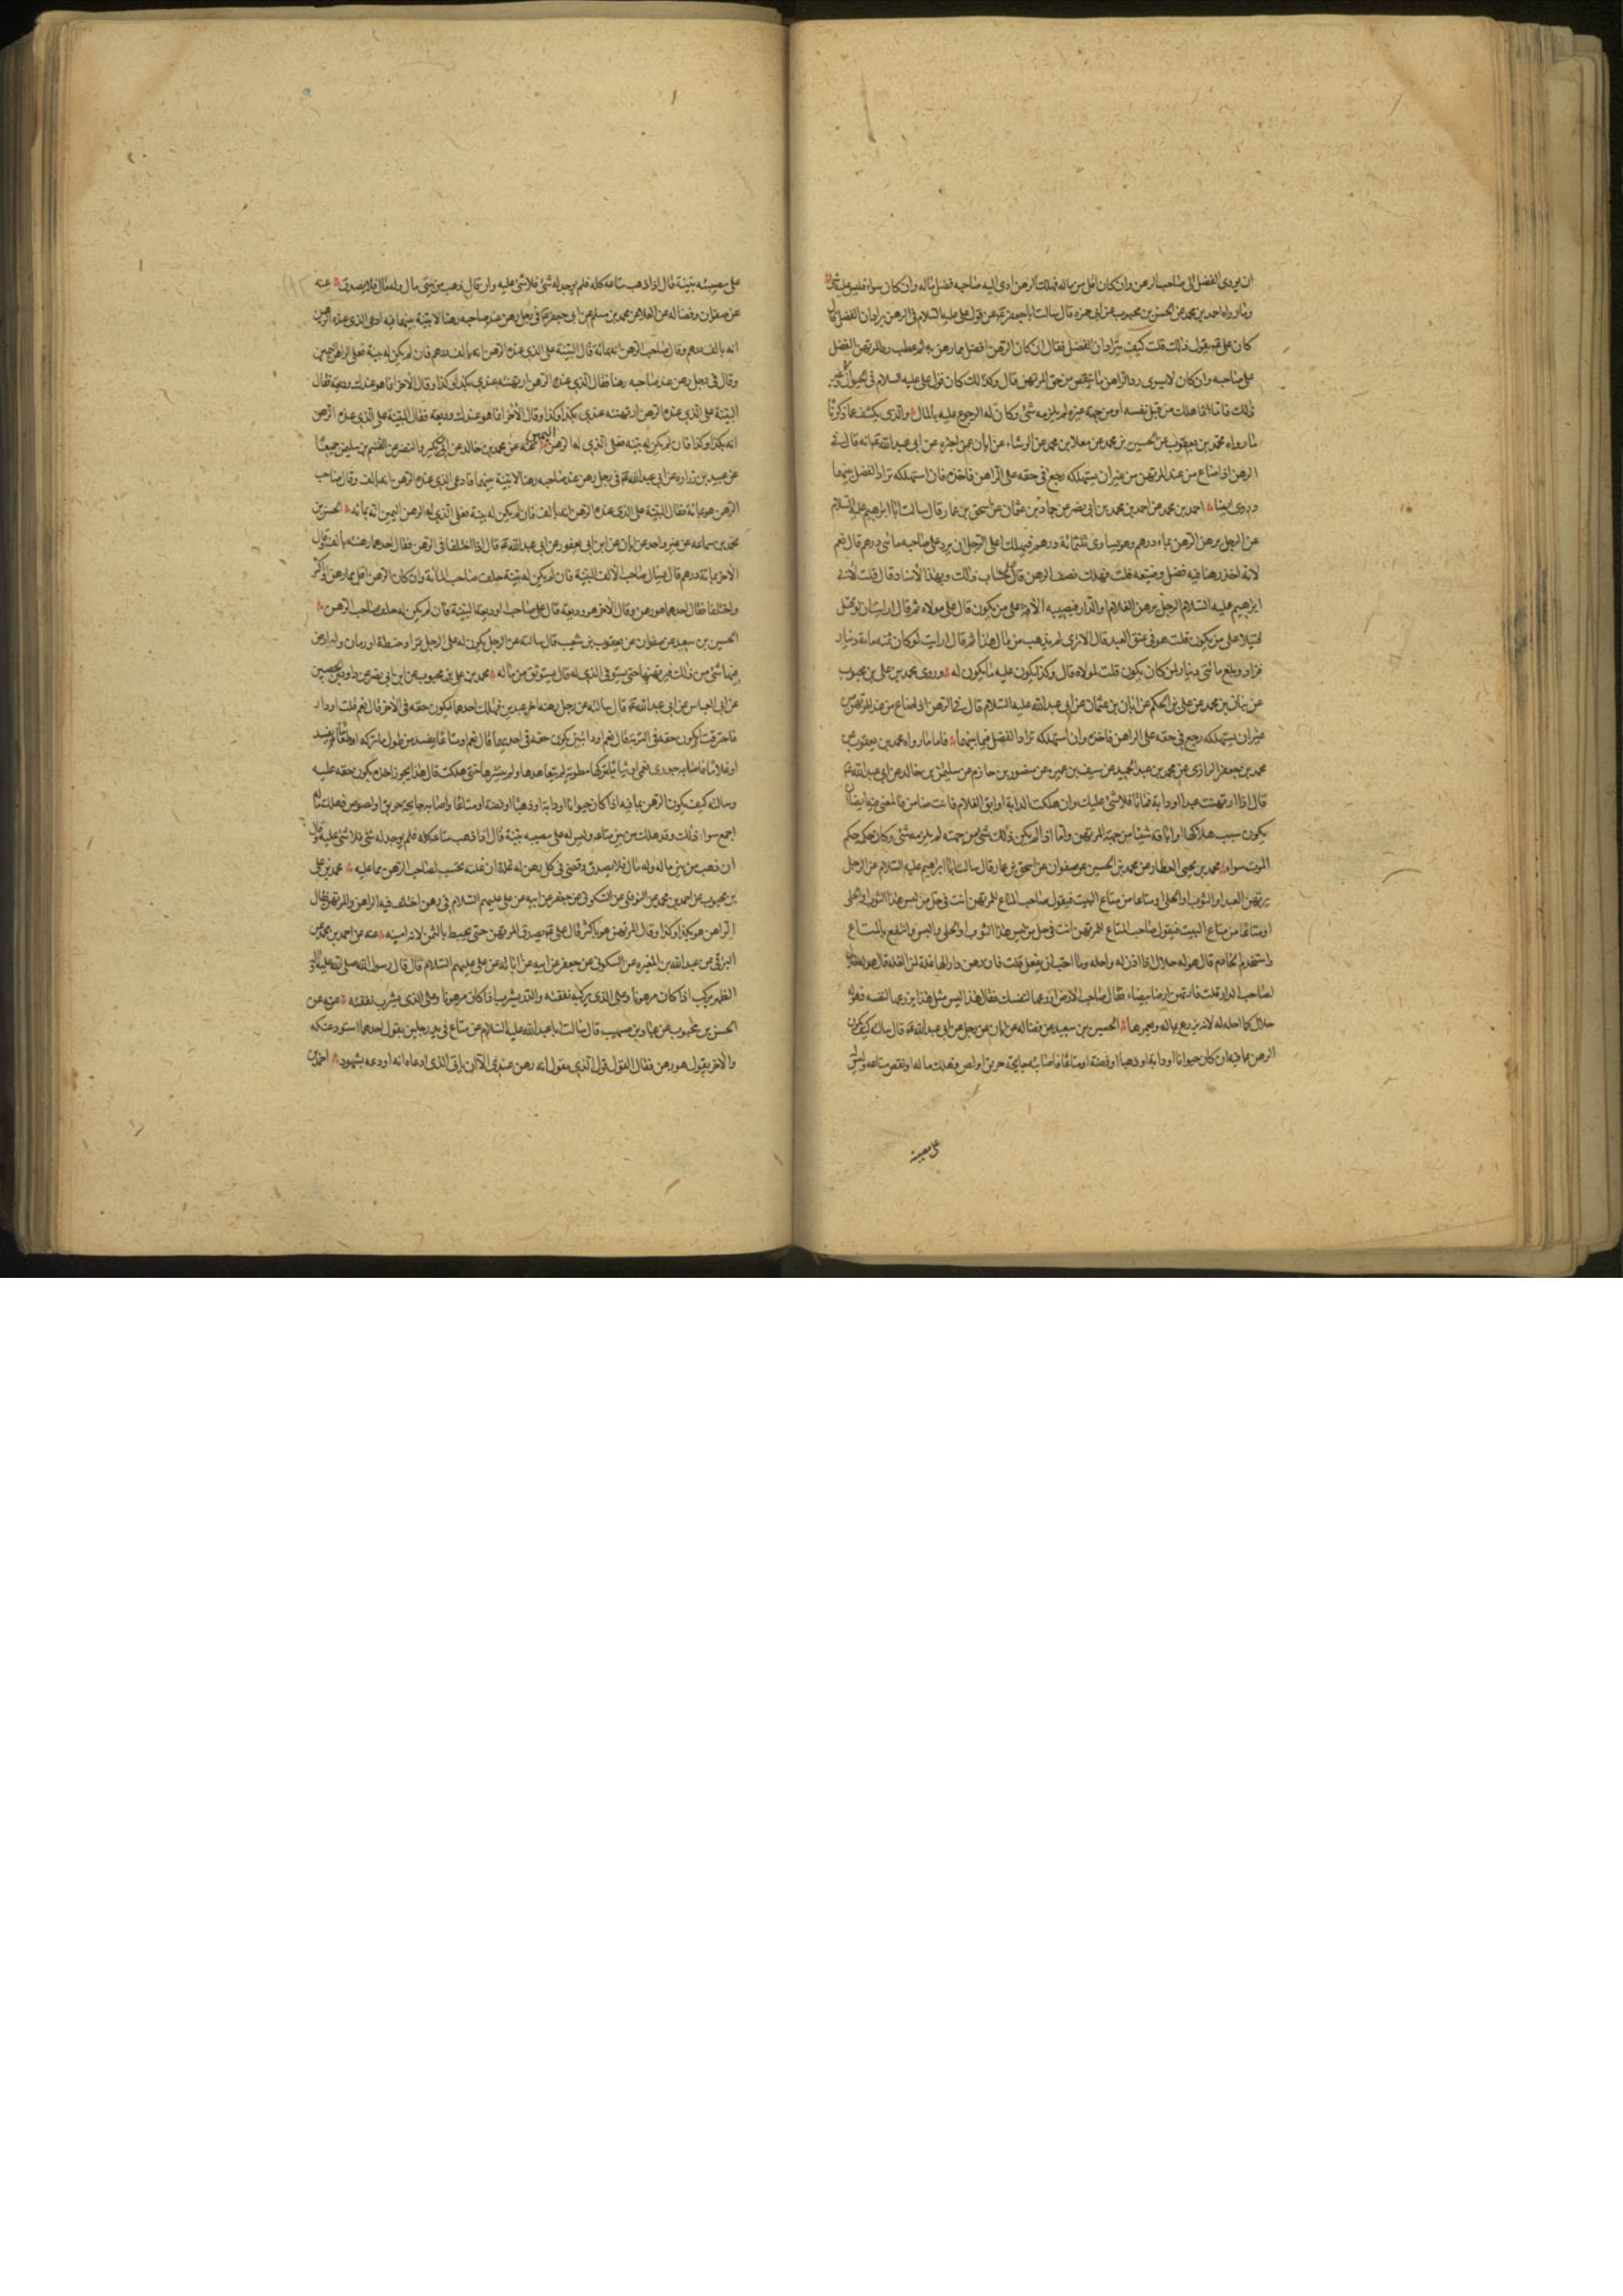 ان يودى الفضل الى صاحب الرهن وان كان اقل من ماله فهلك الرهن ادى اليه صاحبه فضل ماله وان كان سواء فليس عليه شئ
وما رواه احمد بن محمد عن الحسن بن محبوب عن ابى حمزه قال سالت ابا جعفر ع عن قول على عليه السلام فى الرهن يترادان الفضل قال
كان على ع يقول ذلك قلت كيف يترادان الفضل فقال ان كان الرهن افضل مما رهن به ثم عطب رد المرتهن الفضل
على صاحبه وان كان لا يسوى رد الراهن ما ينقص من حق المرتهن قال وكذلك كان قول على عليه السلام فى الحيوان وغير
ذلك فاما اذا هلك من قبل نفسه او من جهة غيره لم يلزمه شئ وكان له الرجوع عليه بالمال والذى يكشف عما ذكرنا
ما رواه محمد بن يعقوب عن الحسين بن محمد عن معلا بن محمد عن الوشاء عن ابان عمن اخبره عن ابى عبد الله ع انه قال فى
الرهن اذا ضاع من عند المرتهن من غير ان يستهلكه رجع فى حقه على الراهن فاخذه فان استهلكه تراد الفضل بينهما
وروى ايضا احمد بن محمد عن احمد بن محمد بن ابى نصر عن حماد بن عثمان عن اسحق بن عمار قال سالت ابا ابراهيم عليه السلام
عن الرجل يرهن الرهن بماءة درهم وهو يساوى ثلثمائة درهم فيهلك اعلى الرجل ان يرد على صاحبه مائتى درهم قال نعم
لانه اخذ رهنا فيه فضل وضيعه قلت فهلك نصف الرهن قال على حساب ذلك وبهذا الاسناد قال قلت لابى
ابراهيم عليه السلام الرجل يرهن الغلام والدار فيصيبه الآفة على من يكون قال على مولاه ثم قال ارايت ان لو قتل
قتيلا على من يكون قلت هو فى عنق العبد قال الا ترى لم يذهب من مال هذا ثم قال ارايت لو كان ثمنه مائة دينار
فزاد وبلغ مائتى دينار لمن كان يكون قلت لمولاه قال وكذا يكون عليه ما يكون له وروى محمد بن على بن محبوب
عن بنان بن محمد عن على بن الحكم عن ابان بن عثمان عن ابى عبد الله عليه السلام قال فى الرهن اذا ضاع من عند المرتهن من
غير ان يستهلكه رجع فى حقه على الراهن فاخذه وان استهلكه تراد الفضل فيما بينهما فاما ما رواه محمد بن يعقوب عن
محمد بن جعفر الرازى عن محمد بن عبد الحميد عن سيف بن عميره عن منصور بن حازم عن سليمن بن خالد عن ابى عبد الله ع
قال اذا ارتهنت عبدا او دابة فماتا فلا شئ عليك وان هلكت الدابة او ابق الغلام فانت ضامن فالمعنى فيه ايضا ان
يكون سبب هلاكها او اباقه شيئا من جهة المرتهن واما اذا لم يكن ذلك شئ من جهته لم يلزمه شئ وكان حكمه حكم
الموت سواء محمد بن يحيى العطار عن محمد بن الحسين عن صفوان عن اسحق بن عمار قال سالت ابا ابراهيم عليه السلام عن الرجل
يرتهن العبد او الثوب او الحلى او متاعا من متاع البيت فيقول صاحب المتاع للمرتهن انت فى حل من لبس هذا الثوب او الحلى
او متاعا من متاع البيت فيقول صاحب المتاع للمرتهن انت فى حل من لبس هذا الثوب او الحلى فالبس وانتفع بالمتاع
واستخدم الخادم قال هو له حلال اذا اذن له واحله وما احب ان يفعل قلت فان رهن دارا لها غلة لمن الغلة قال هو
لصاحب الدار قلت فارتهن ارضا بيضاء فقال صاحب الارض ازرعها لنفسك فقال هذا ليس مثل هذا يزرعها لنفسه فهو له
حلال كما احله له لانه يزرع بماله ويعمرها الحسين بن سعيد عن فضاله عن ابان عن رجل عن ابى عبد الله ع قال سالته كيف يكون
الرهن بما فيه ان كان حيوانا او دابة او ذهبا او فضة او متاعا فاصابه جايحة حريق او لص فهلك ماله او نقص متاعه وليس له
على مصيبته
على مصيبته بينة قال اذا ذهب متاعه كله فلم يوجد له شئ فلا شئ عليه وان قال ذهب من بيتى مالى وله مال فلا يصدق عنه
عن صفوان وفضاله عن العلا عن محمد بن مسلم عن ابى جعفر ع فى رجل رهن عند صاحبه رهنا لا بينة بينهما فيه ادعى الذى عنده الرهن
انه بالف درهم وقال صاحب الرهن انه بمائة قال البينة على الذى عنده الرهن انه بالف درهم فان لم يكن له بينة فعلى الراهن اليمين
وقال فى رجل رهن عند صاحبه رهنا فقال الذى عنده الرهن ارتهنته عندى بكذا وكذا وقال الاخر انما هو عندك وديعة فقال
البينة على الذى عنده الرهن ارتهنته عندى بكذا وكذا وقال الاخر انما هو عندك وديعه فقال البينة على الذى عنده الرهن
انه بكذا وكذا فان لم يكن له بينه فعلى الذى له الرهن اليمين عنه عن محمد بن خالد عن ابن بكير والنضر عن القسم بن سليمن جميعا
عن عبيد بن زراره عن ابى عبد الله ع فى رجل رهن عند صاحبه رهنا لا بينة بينهما فادعى الذى عنده الرهن انه بالف وقال صاحب
الرهن هو بمائة فقال البينة على الذى عنده الرهن انه بالف فان لم يكن له بينة فعلى الذى له الرهن اليمين انه بمائه الحسن بن
محمد بن سماعه عن غير واحد عن ابان عن ابن ابى يعفور عن ابى عبد الله ع قال اذا اختلفا فى الرهن فقال احدهما رهنته بالف وقال
الآخر بمائة درهم قال يسال صاحب الالف البينة فان لم يكن له بينة حلف صاحب المائة وان كان الرهن اقل مما رهن او اكثر
واختلفا فقال احدهما هو رهن وقال الاخر هو وديعة قال على صاحب الوديعة البينة فان لم يكن له حلف صاحب الرهن
الحسين بن سعيد عن صفوان عن يعقوب بن شعيب قال سالته عن الرجل يكون له على الرجل تمر او حنطة او رمان وله ارض
فيها شئ من ذلك فيرتهنها حتى يستوفى الذى له قال يستوثق من ماله محمد بن على بن محبوب عن ابن ابى نصر عن داود بن الحصين
عن ابى العباس عن ابى عبد الله ع قال سالته عن رجل رهن عند اخر عبدين فهلك احدهما ايكون حقه فى الآخر قال نعم قلت او دارا
فاحترقت ايكون حقه فى التربة قال نعم او دابتين يكون حقه فى احديهما قال نعم او متاعا يفسد من طول ما تركه او طعاما يفسد
او غلاما فاصابه جدرى فعمى او ثيابا تركها مطوية لم يتعاهدها ولم ينشرها حتى هلكت قال هذا يجوز اخذه يكون حقه عليه
وسالته كيف يكون الرهن بما فيه اذا كان حيوانا او دابة او ذهبا او فضة او متاعا واصابه جايحة حريق او لصوص فهلك ماله
اجمع سواء ذلك وقد هلك من بين متاعه وليس له على مصيبته بينة قال اذا ذهب متاعه كله فلم يوجد له شئ فلا شئ عليه وقال
ان ذهب من بين ماله وله مال فلا يصدق وقضى فى كل رهن له غلة ان غلته تحتسب لصاحب الرهن مما عليه محمد بن على
بن محبوب عن احمد بن محمد عن النوفلى عن السكونى عن جعفر عن ابيه عن على عليهم السلام فى رهن اختلف فيه الراهن والمرتهن فقال
الراهن هو بكذا وكذا وقال المرتهن هو باكثر قال على ع يصدق المرتهن حتى يحيط بالثمن لانه امينه عنه عن احمد بن محمد عن
البرقى عن عبد الله بن المغيره عن السكونى عن جعفر عن ابيه عن آبائه عن على عليهم السلام قال قال رسول الله صلى الله عليه واله
الظهر يركب اذا كان مرهونا وعلى الذى يركبه نفقته والدر يشرب اذا كان مرهونا وعلى الذى يشرب نفقته عنه عن
الحسن بن محبوب عن عباد بن صهيب قال سالت ابا عبد الله عليه السلام عن متاع فى يدى رجلين يقول احدهما استودعتكه
والاخر يقول هو رهن فقال القول قول الذى يقول انه رهن عندى الا ان ياتى الذى ادعاه انه اودعه بشهود احمد بن